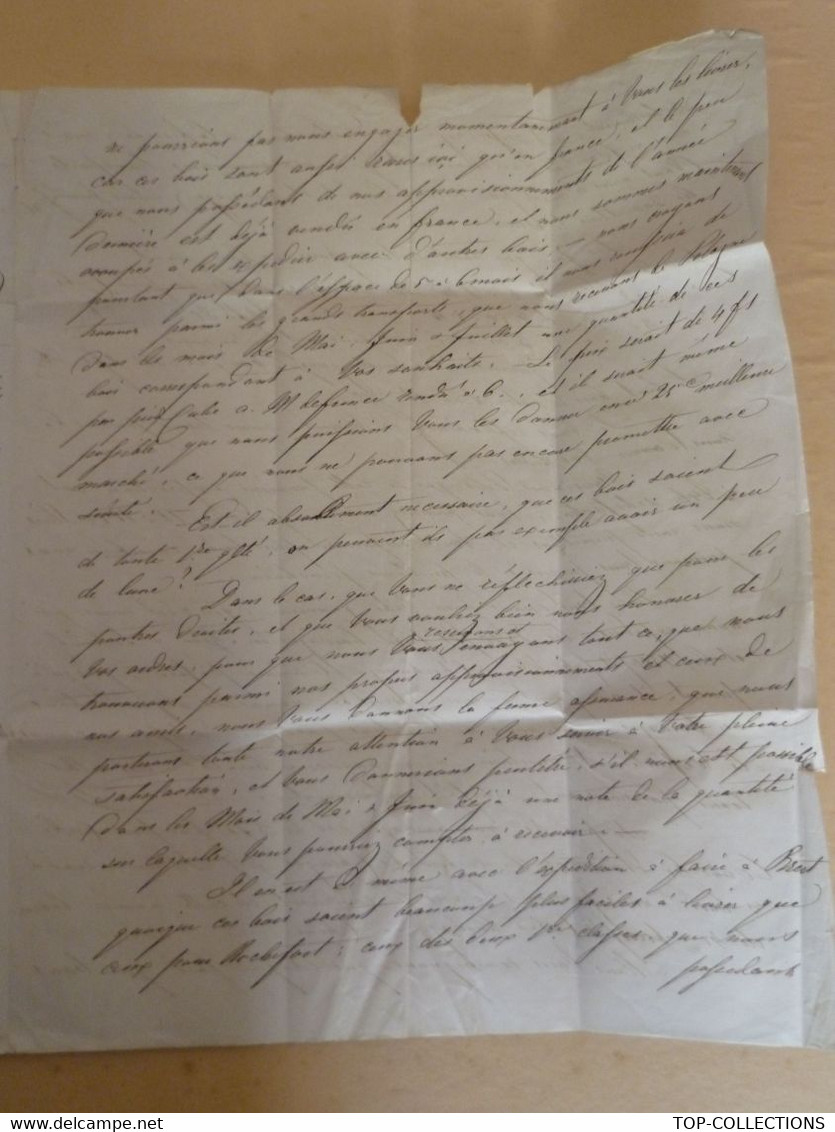 ne pourrions pas nous engager momentanement à Vous les livrer,
car ces bois sont aussi rares ici qu'en france, et le peu
que nous possédons de nos approvisionnements de l'année
dernière est déjà vendu en france, et nous sommes maintenant
occupés à les expedier avec d'autres bois — nous croyons
pourtant que dans l'espace de 5 à 6 mois il nous reussira de
trouver parmi les grands transports, que nous recevons de Pologne
dans les mois de Mai, Juin & Juillet une quantité de ces
bois correspondant à Vos souhaits. — Le prix serait de 4 f
par pied Cube rendu et il serait même
possible que nous puissions Vous les donner encore 25 c meilleur
marché, ce que nous ne pouvons pas encore promettre avec
sûreté. —
Est-il absolument necessaire, que ces bois soient
de toute 1re qlté, ou peuvent ils par exemple avoir un peu
de lune?
Dans le cas, que Vous ne réflechissiez que pour les
poutres droites, et que Vous vouliez bien nous honorer de
Vos ordres, pour que nous Vous reservons et envoyons tout ce, que nous
trouverons parmi nos propres approvisionnements et ceux de
nos amis, nous Vous donnons la ferme assurance, que nous
porterons toute notre attention à Vous servir à Votre pleine
satisfaction, et Vous donnerions peutêtre, s'il nous est possible
dans les Mois de Mai & Juin déjà une note de la quantité
sur laquelle Vous pourriez compter à recevoir. —
Il en est de même avec l'expedition à faire à Brest
quoique ces bois soient beaucoup plus faciles à livrer que
ceux pour Rochefort; ceux des deux 1res classes, que nous
possedons
TOP-COLLECTIONS